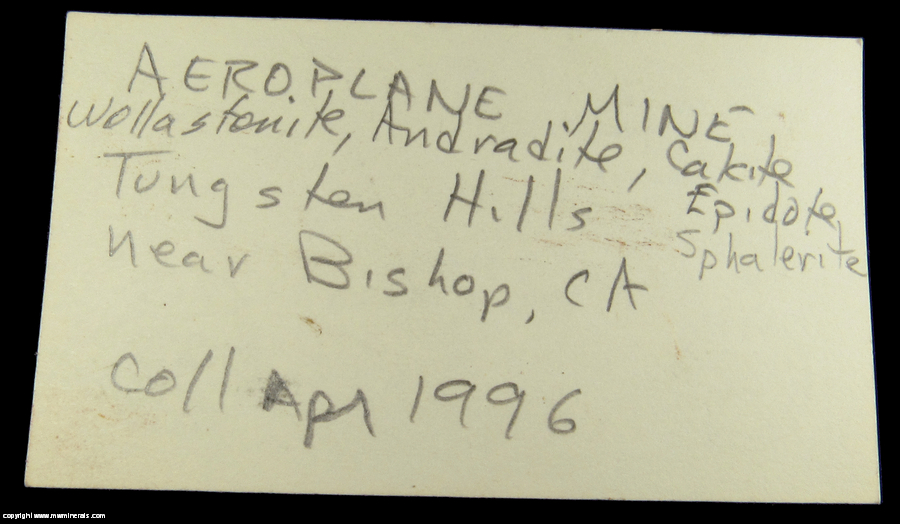 AEROPLANE MINE
Wollastonite, Andradite, Calcite
Tungsten Hills Epidote,
near Bishop, CA Sphalerite
Coll Apr 1996
copyright www.mwminerals.com